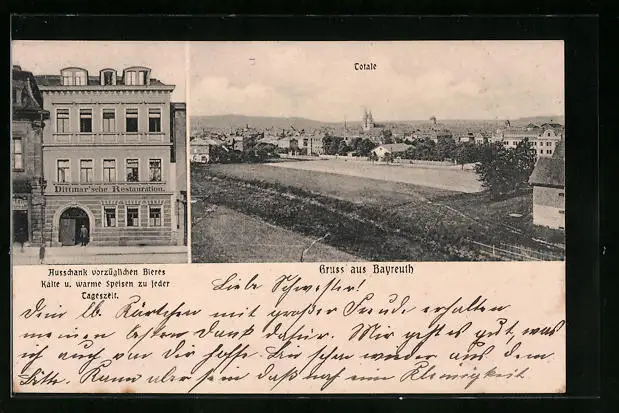 Totale
Dittmar'sche Restauration.
Ausschank vorzüglichen Bieres
Kalte u. warme Speisen zu jeder
Tageszeit.
Gruss aus Bayreuth
Liebe Schwester!
Dein lb. Kärtchen mit großer Freude erhalten
meinen besten Dank dafür. Mir geht es gut, was
ich auch von Dir hoffe. Bin schon wieder aus dem
Bitte. Kann aber sein daß noch eine Kleinigkeit